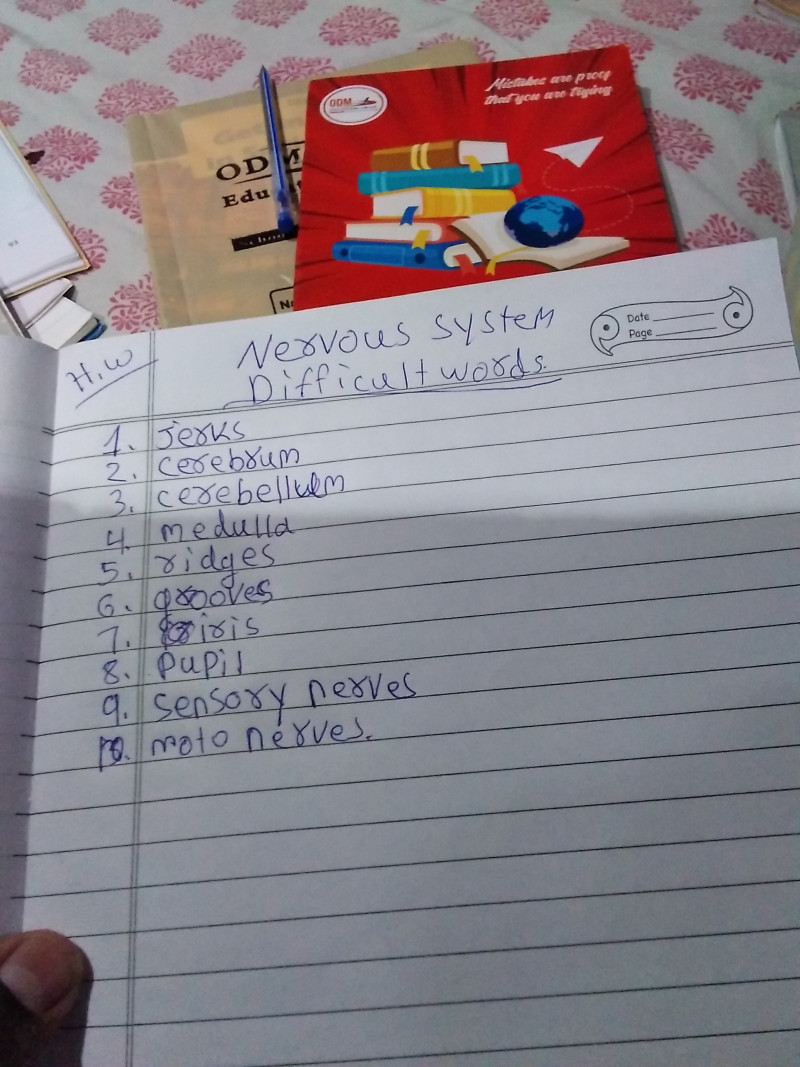 ODM
Mistakes are proof
that you are trying
ODM
Edu
H.W
Nervous system
Difficult words.
Date
Page
1. Jerks
2. cerebrum
3. cerebellum
4. medulla
5. ridges
6. grooves
7. iris
8. pupil
9. sensory nerves
10. moto nerves.